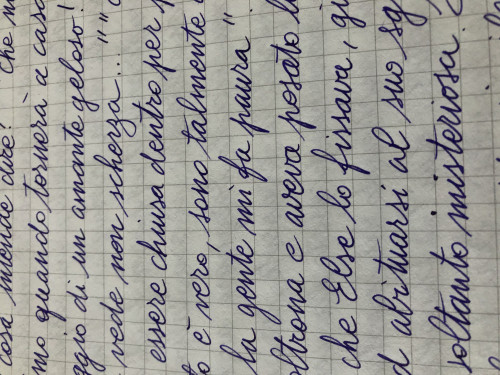 cosa intende dire? Che
mo quando tornerà a casa
ggio di un amante geloso!
vede non scherza..." "
essere chiusa dentro per
to è vero, sono talmente
la gente mi fa paura"
oltrona e aveva posato
che Else lo fissava,
d abituarsi al suo
soltanto misteriosa.